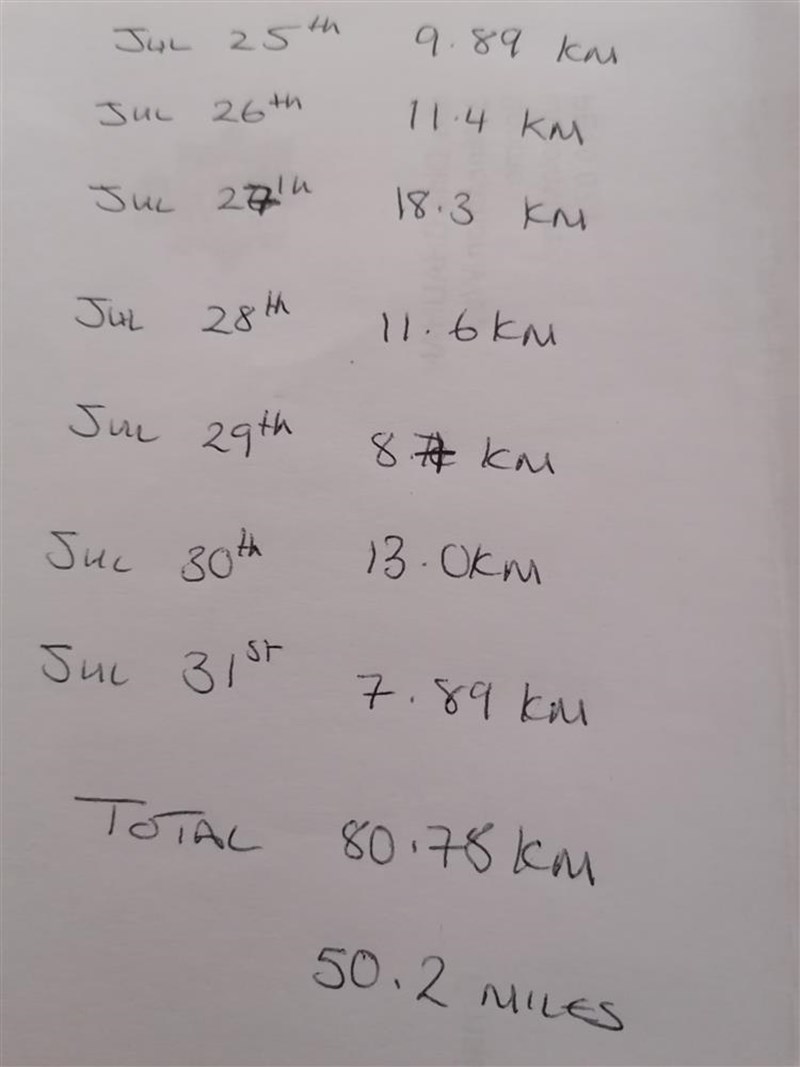 Jul 25th 9.89 KM
Jul 26th 11.4 KM
Jul 27th 18.3 KM
Jul 28th 11.6 KM
Jul 29th 8.7 KM
Jul 30th 13.0 KM
Jul 31st 7.89 KM
TOTAL 80.78 KM
50.2 MILES